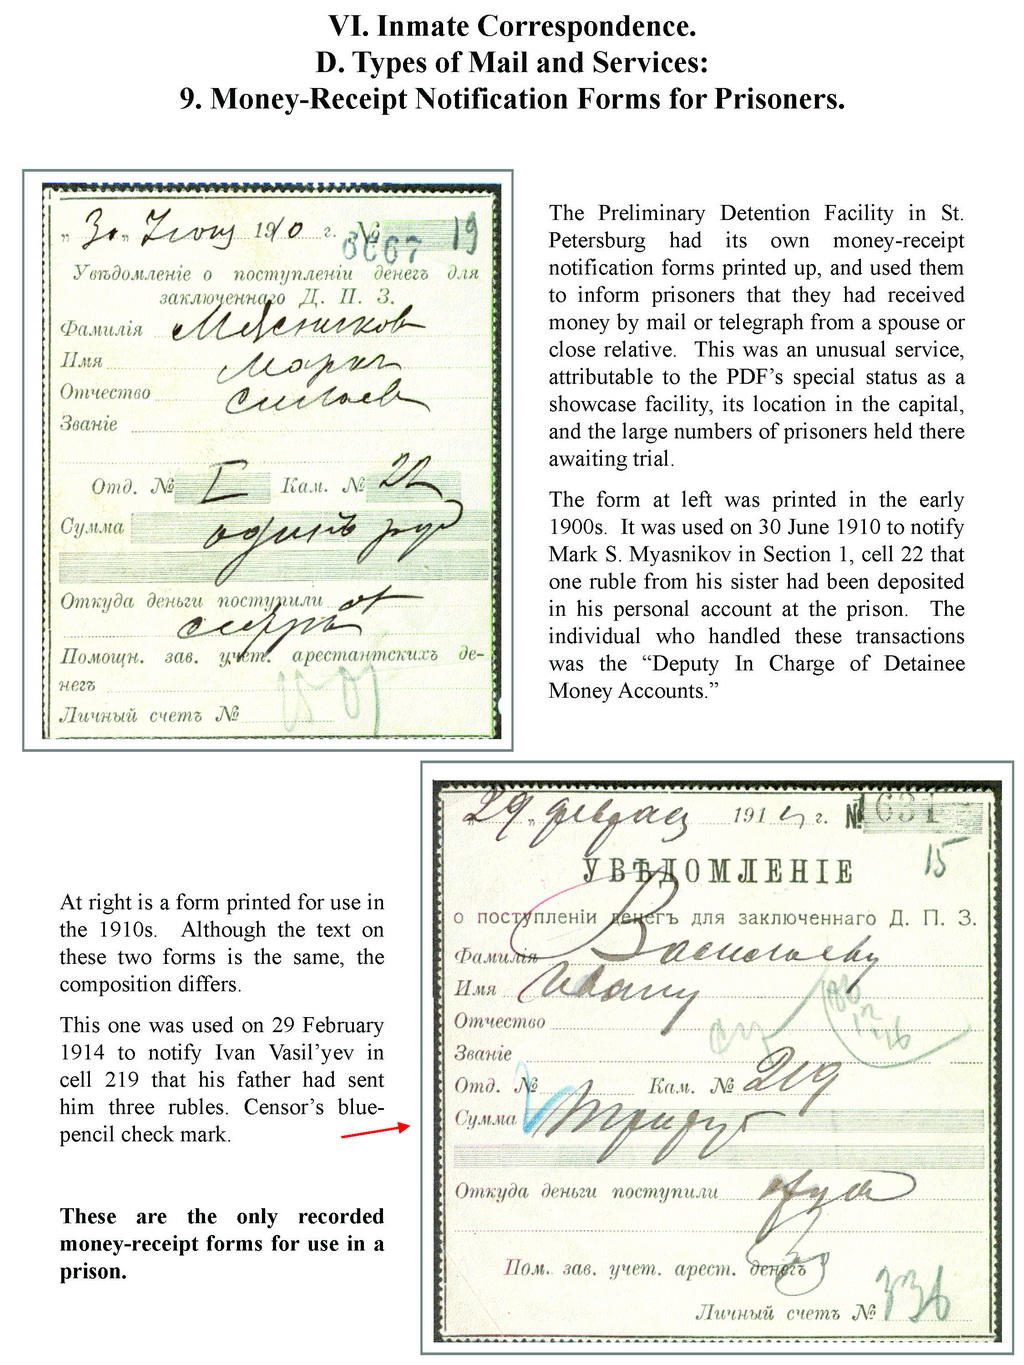 VI. Inmate Correspondence.
D. Types of Mail and Services:
9. Money-Receipt Notification Forms for Prisoners.
„30„ Іюня 1910 г. № 6667 19
Увѣдомленіе о поступленіи денегъ для
заключеннаго Д. П. З.
Фамилія Мясниковъ
Имя Маркъ
Отчество
Званіе
Отд. № I Кам. № 22
Сумма одинъ руб
Откуда деньги поступили от
сестры
Помощн. зав. учет. арестантскихъ де-
негъ
Личный счетъ №
The Preliminary Detention Facility in St.
Petersburg had its own money-receipt
notification forms printed up, and used them
to inform prisoners that they had received
money by mail or telegraph from a spouse or
close relative. This was an unusual service,
attributable to the PDF's special status as a
showcase facility, its location in the capital,
and the large numbers of prisoners held there
awaiting trial.
The form at left was printed in the early
1900s. It was used on 30 June 1910 to notify
Mark S. Myasnikov in Section 1, cell 22 that
one ruble from his sister had been deposited
in his personal account at the prison. The
individual who handled these transactions
was the “Deputy In Charge of Detainee
Money Accounts.”
At right is a form printed for use in
the 1910s. Although the text on
these two forms is the same, the
composition differs.
This one was used on 29 February
1914 to notify Ivan Vasil'yev in
cell 219 that his father had sent
him three rubles. Censor's blue-
pencil check mark.
These are the only recorded
money-receipt forms for use in a
prison.
„29„ февраля 1914 г. № 1631
15
УВѢДОМЛЕНІЕ
о поступленіи денегъ для заключеннаго Д. П. З.
Фамилія Васильеву
Имя Ивану
Отчество
Званіе
Отд. № Кам. № 219
Сумма три руб
Откуда деньги поступили отца
Пом. зав. учет. арест. денегъ
Личный счетъ № 336